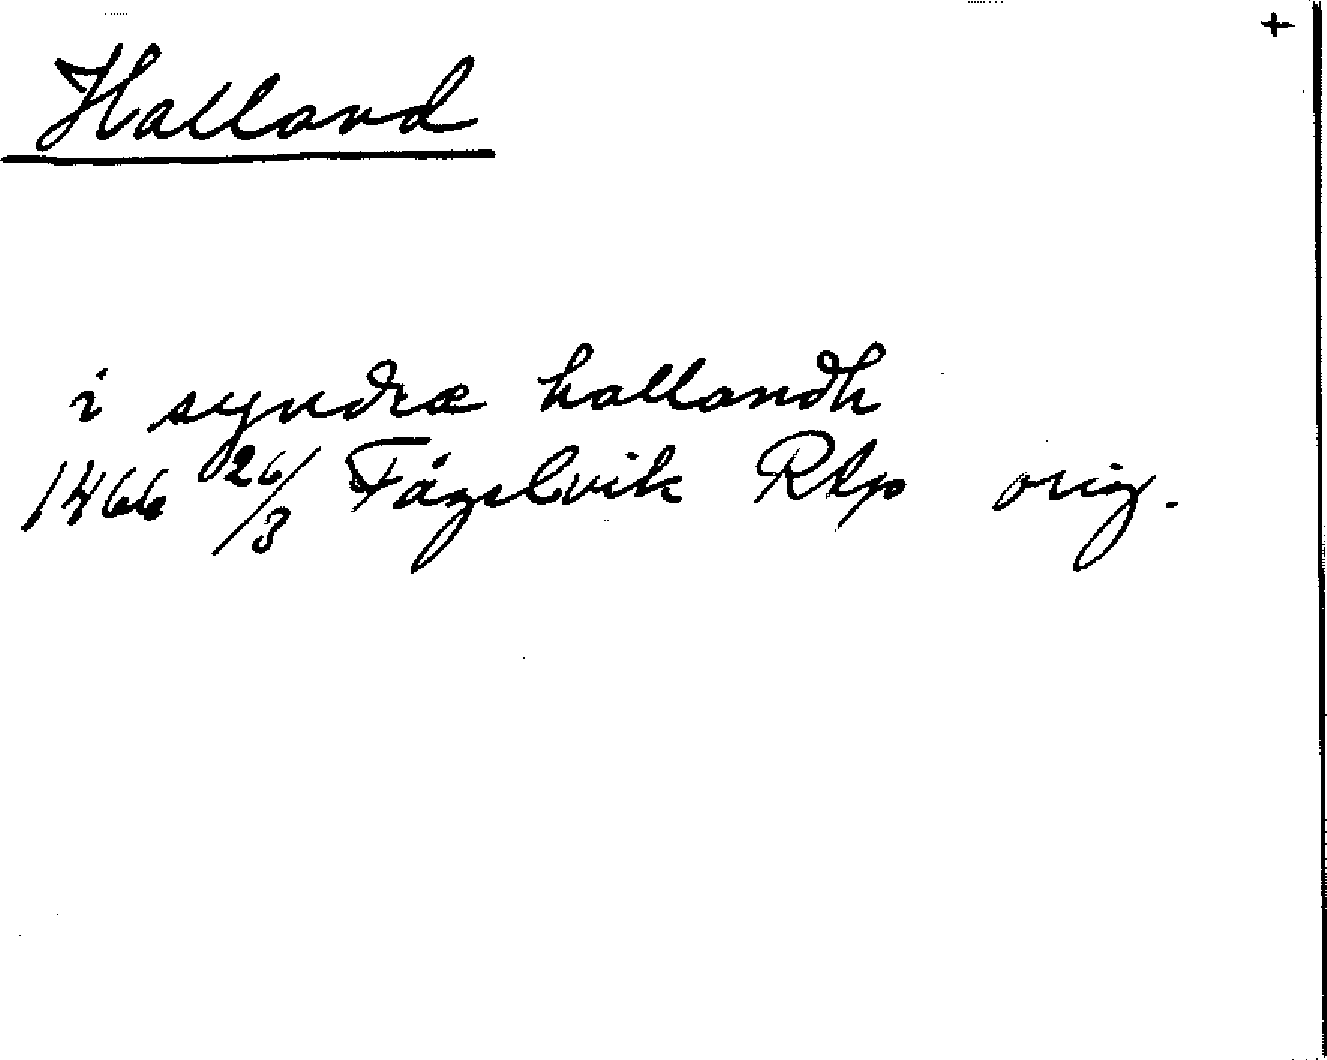 +
Halland
i syndræ hallandh
1466 26/3 Fågelvik RAp orig.